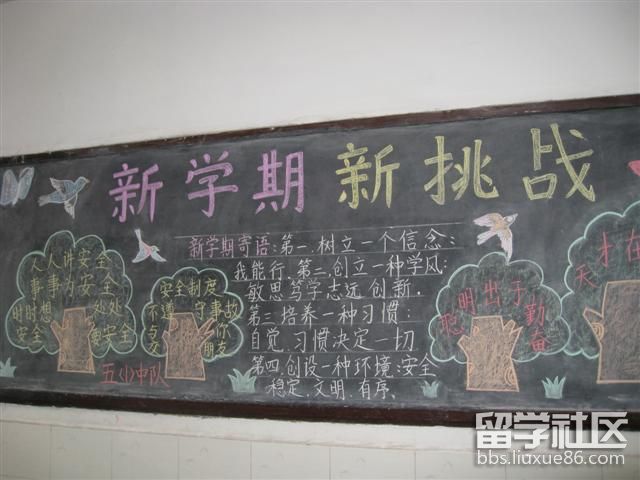 新学期 新挑战
新学期寄语:第一.树立一个信念:
我能行.第二.创立一种学风:
敏思笃学志远 创新.
第三.培养一种习惯:
自觉.习惯决定一切
第四.创设一种环境:安全
稳定.文明.有序.
人人讲安全
事事为安全
时时想 处处
安全 要安全
安全制度
不遵 守事故
与交 你朋友
五(1)中队
聪明出于勤奋
天才在
留学社区
bbs.liuxue86.com